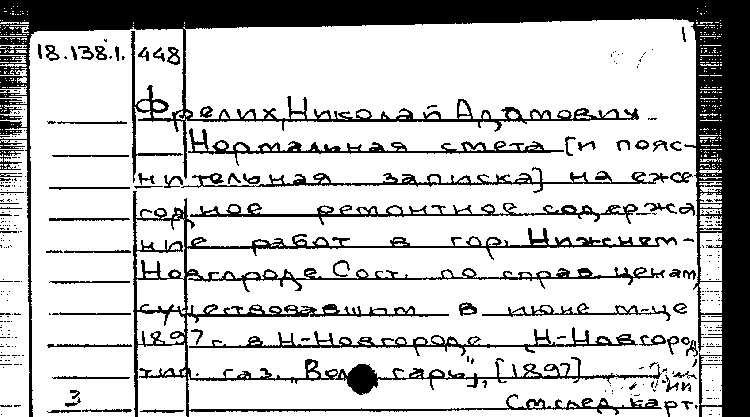 1
18.138.1. 448
Фрелих, Николай Адамович.
Нормальная смета [и пояс-
нительная записка] на еже
годное ремонтное содержа
ние работ в гор. Нижнем-
Новгороде Сост. по справ. ценам,
существовавшим в июне м-це
1897 г. в Н-Новгороде. Н-Новгород,
тип. газ. "Волгарь", [1897]
3 См. след. карт.